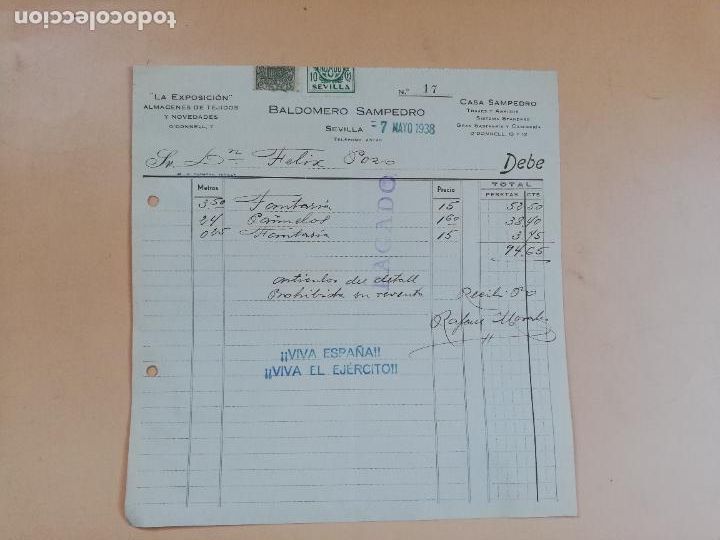 todocoleccion
10
SEVILLA
N.º 17
"LA EXPOSICIÓN"
ALMACENES DE TEJIDOS
Y NOVEDADES
O'DONELL, 7
BALDOMERO SAMPEDRO
SEVILLA -7 MAYO 1938
TELÉFONO
CASA SAMPEDRO
TRAJES Y ABRIGOS
SISTEMA STANDARD
GRAN SASTRERÍA Y CAMISERÍA
O'DONELL, 10 Y 12
Sr. Dn Felix Pozo Debe
Metros Precio TOTAL
PESETAS CTS
3,50 Fantasia 15 52 50
24 Pañuelos 1,60 38 40
0,25 Fantasia 15 3 75
94 65
PAGADO
Articulos del detall
Prohibida su reventa
Recibi
Rafael Morales
¡¡VIVA ESPAÑA!!
¡¡VIVA EL EJÉRCITO!!